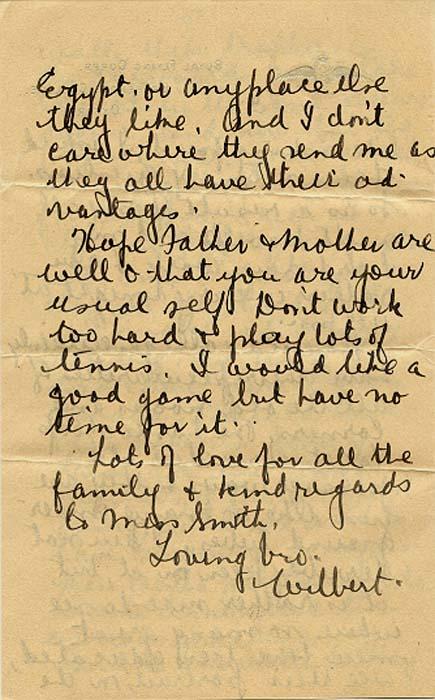 Egypt. or anyplace else
they like. And I don't
care where they send me as
they all have their ad-
vantages.
Hope Father & Mother are
well & that you are your
usual self. Don't work
too hard & play lots of
tennis. I would like a
good game but have no
time for it..
Lots of love for all the
family & kind regards
to Miss Smith.
Loving bro.
Wilbert.